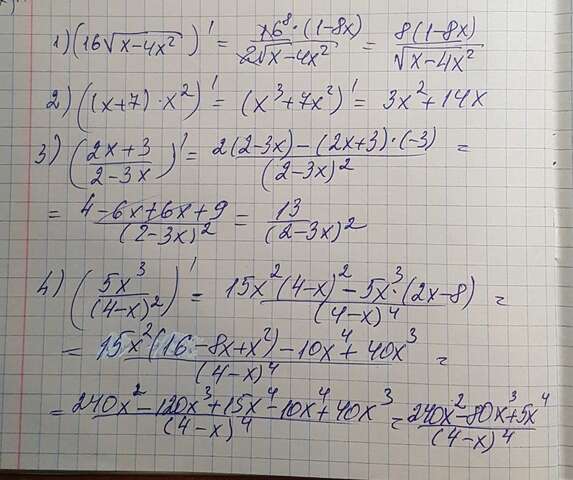 1) (16√(x-4x²))' = 16⁸·(1-8x)/2√(x-4x²) = 8(1-8x)/√(x-4x²)
2) ((x+7)·x²)' = (x³+7x²)' = 3x²+14x
3) ((2x+3)/(2-3x))' = (2(2-3x)-(2x+3)·(-3))/(2-3x)² =
= (4-6x+6x+9)/(2-3x)² = 13/(2-3x)²
4) (5x³/(4-x)²)' = (15x²(4-x)²-5x³·(2x-8))/(4-x)⁴ =
= (15x²(16-8x+x²)-10x⁴+40x³)/(4-x)⁴ =
= (240x²-120x³+15x⁴-10x⁴+40x³)/(4-x)⁴ = (240x²-80x³+5x⁴)/(4-x)⁴